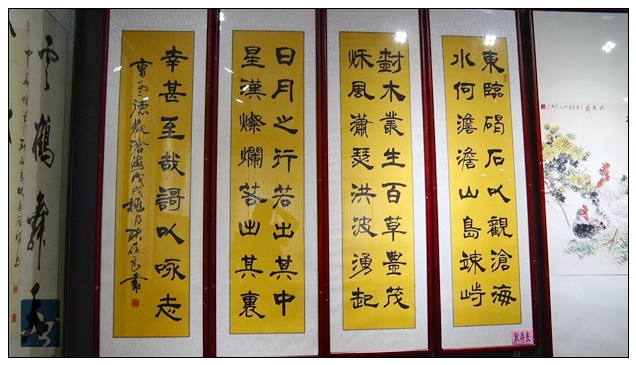 東臨碣石以觀滄海
水何澹澹山島竦峙
樹木叢生百草豊茂
秋風瀟瑟洪波湧起
日月之行若出其中
星漢燦爛若出其裏
幸甚至哉謌以咏志
曹孟德觀滄海戊戌桃月耿存良書
耿存良
雲鶴舞天